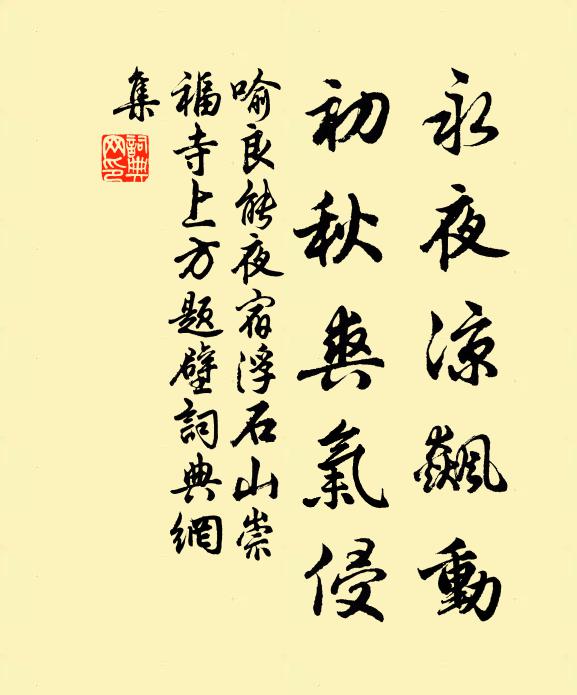 永夜涼飆動
初秋爽氣侵
喻良能夜宿浮石山崇
福寺上方題壁詞典網
集
詞典網印